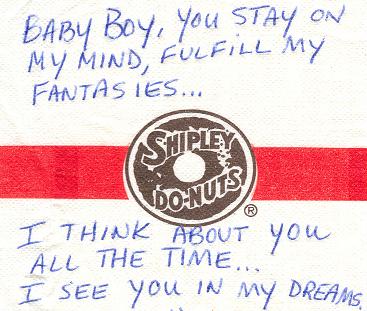 BABY BOY, YOU STAY ON
MY MIND, FULFILL MY
FANTASIES...
SHIPLEY
DO-NUTS
®
I THINK ABOUT YOU
ALL THE TIME...
I SEE YOU IN MY DREAMS.